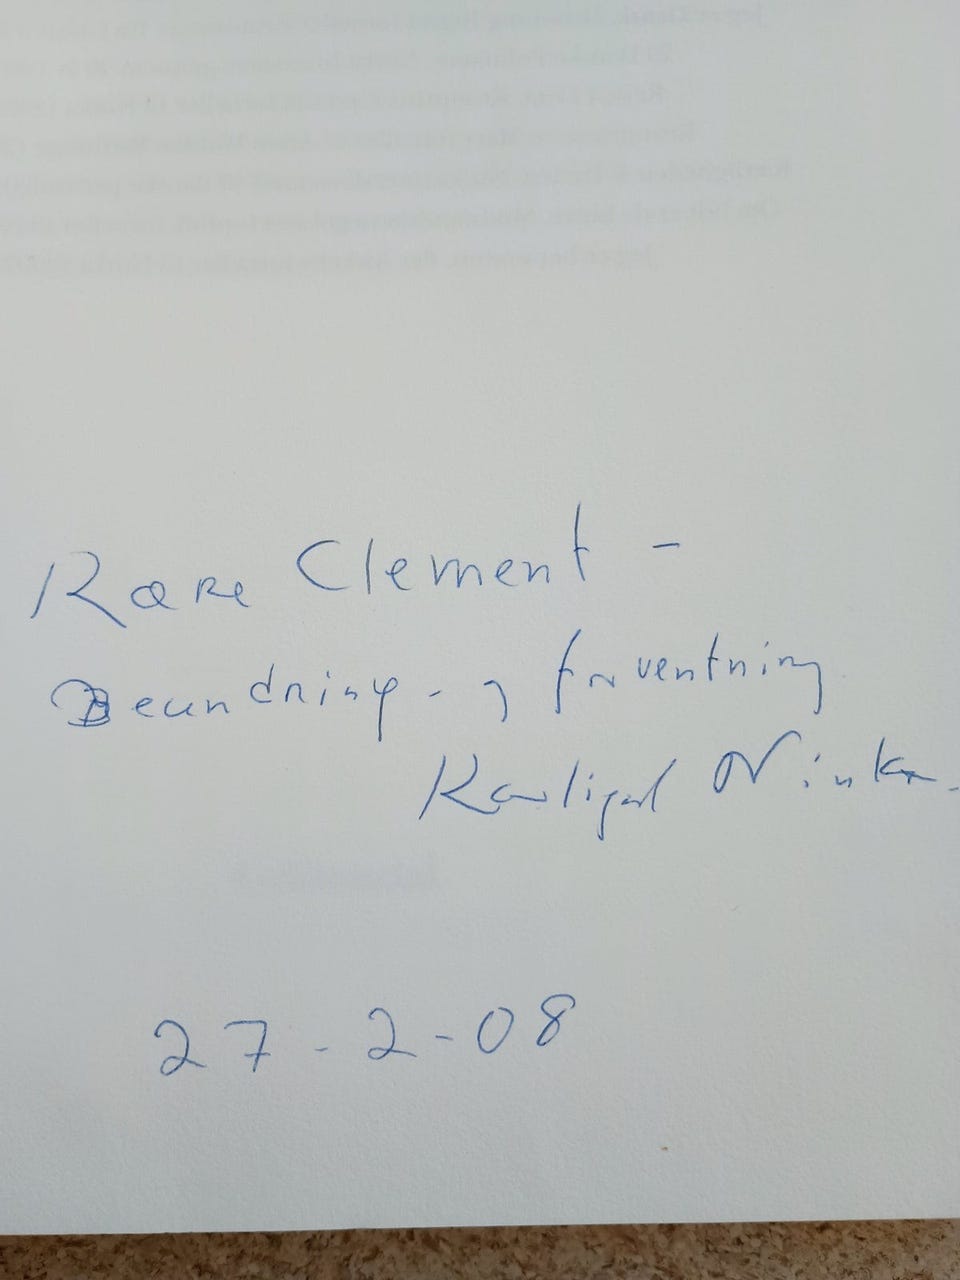 Kære Clement -
Beundring - og forventning
Kærligst Ninka.
27 - 2 - 08